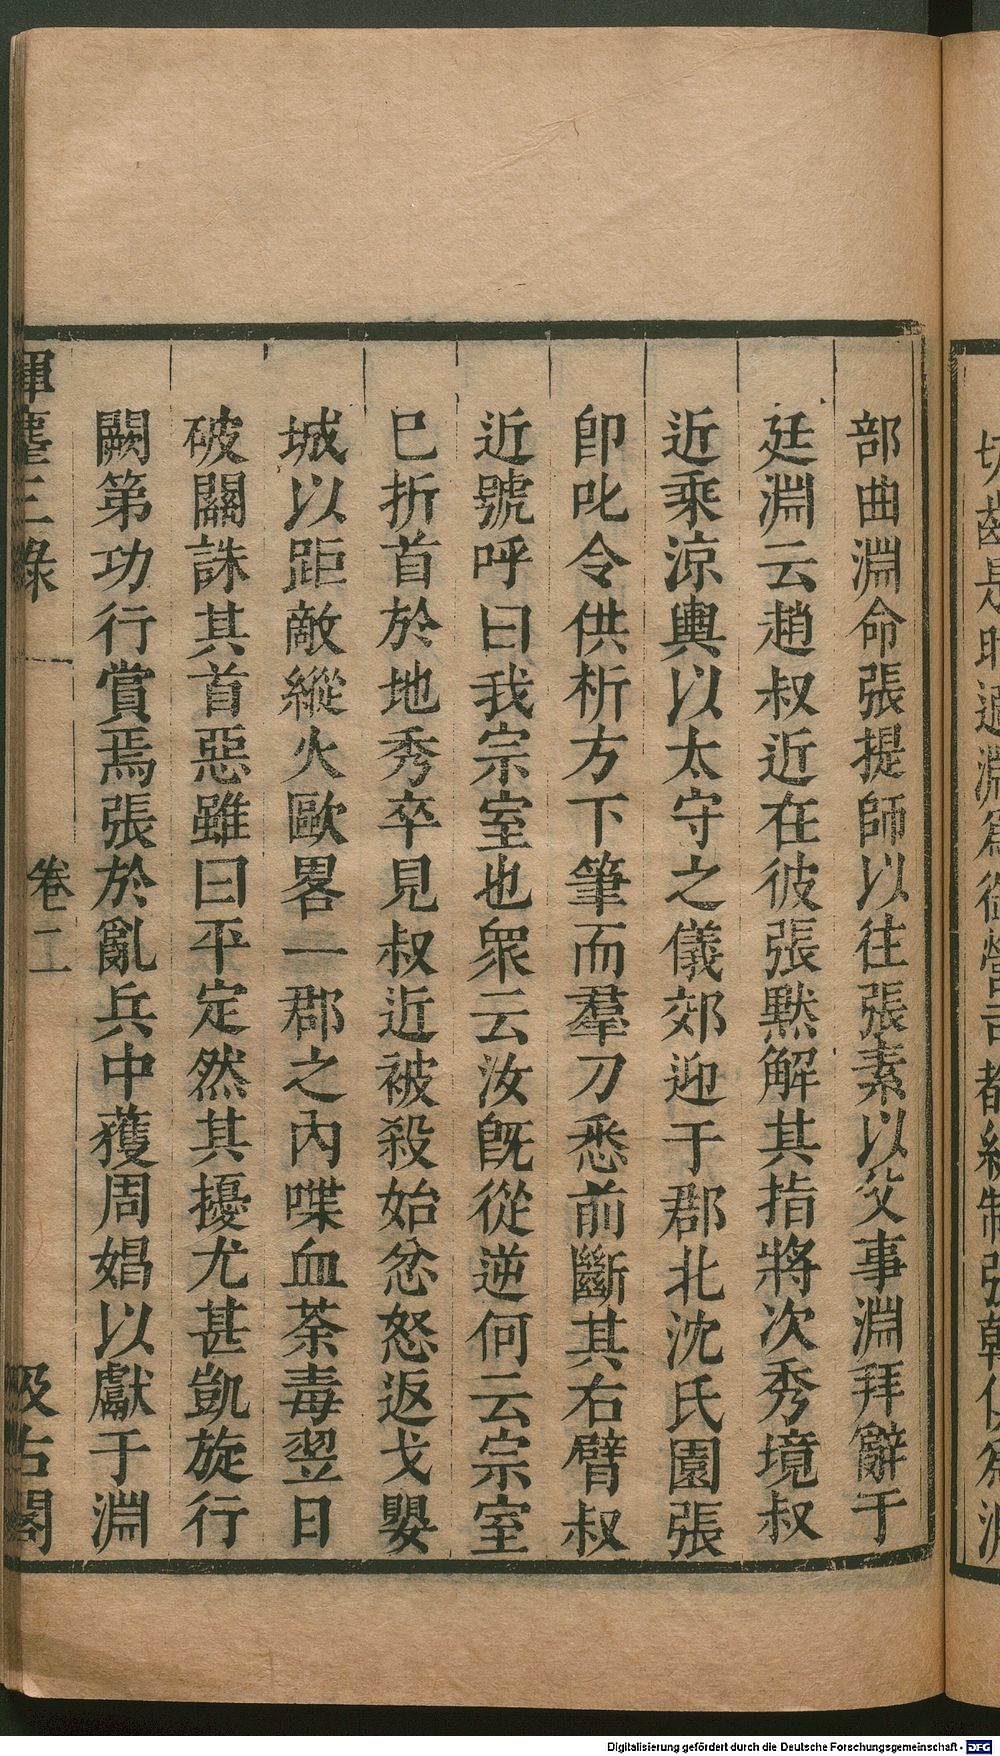 部曲淵命張提師以往張素以父事淵拜辭于
廷淵云趙叔近在彼張黙解其指將次秀境叔
近乘涼輿以太守之儀郊迎于郡北沈氏園張
卽叱令供析方下筆而羣刀悉前斷其右臂叔
近號呼曰我宗室也衆云汝旣從逆何云宗室
巳折首於地秀卒見叔近被殺始忿怒返戈嬰
城以距敵縱火歐畧一郡之內喋血荼毒翌日
破關誅其首惡雖曰平定然其擾尤甚凱旋行
闕第功行賞焉張於亂兵中獲周娼以獻于淵
揮麈三錄
卷二
汲古閣
Digitalisierung gefördert durch die Deutsche Forschungsgemeinschaft - DFG